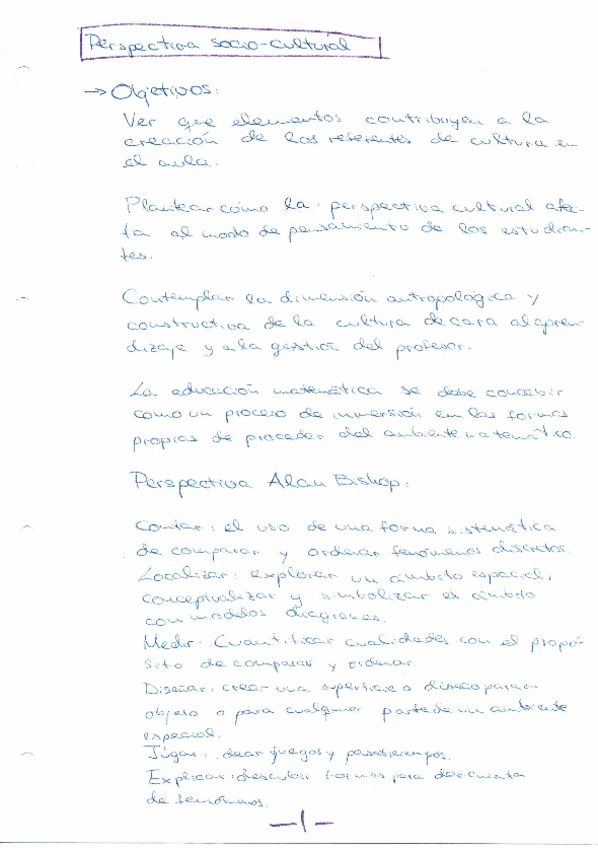 Perspectiva socio-cultural
→ Objetivos:
Ver que elementos contribuyen a la
creación de los referentes de cultura en
el aula.
Plantear cómo la perspectiva cultural afec-
ta al modo de pensamiento de los estudian-
tes.
Contemplar la dimensión antropológica y
constructiva de la cultura de cara al apren-
dizaje y a la gestión del profesor.
La educación matemática se debe concebir
como un proceso de inmersión en las formas
propias de proceder del ambiente matemático.
Perspectiva Alan Bishop:
Contar: el uso de una forma sistemática
de comparar y ordenar fenómenos discretos.
Localizar: explorar un ámbito espacial,
conceptualizar y simbolizar el ámbito
con modelos diagramas.
Medir: Cuantificar cualidades con el propó-
sito de comparar y ordenar.
Diseñar: crear una superficie o diseño para un
objeto o para cualquier parte de un ambiente
espacial.
Jugar: crear juegos y pasatiempos.
Explicar: descubrir formas para dar cuenta
de fenómenos.
—1—